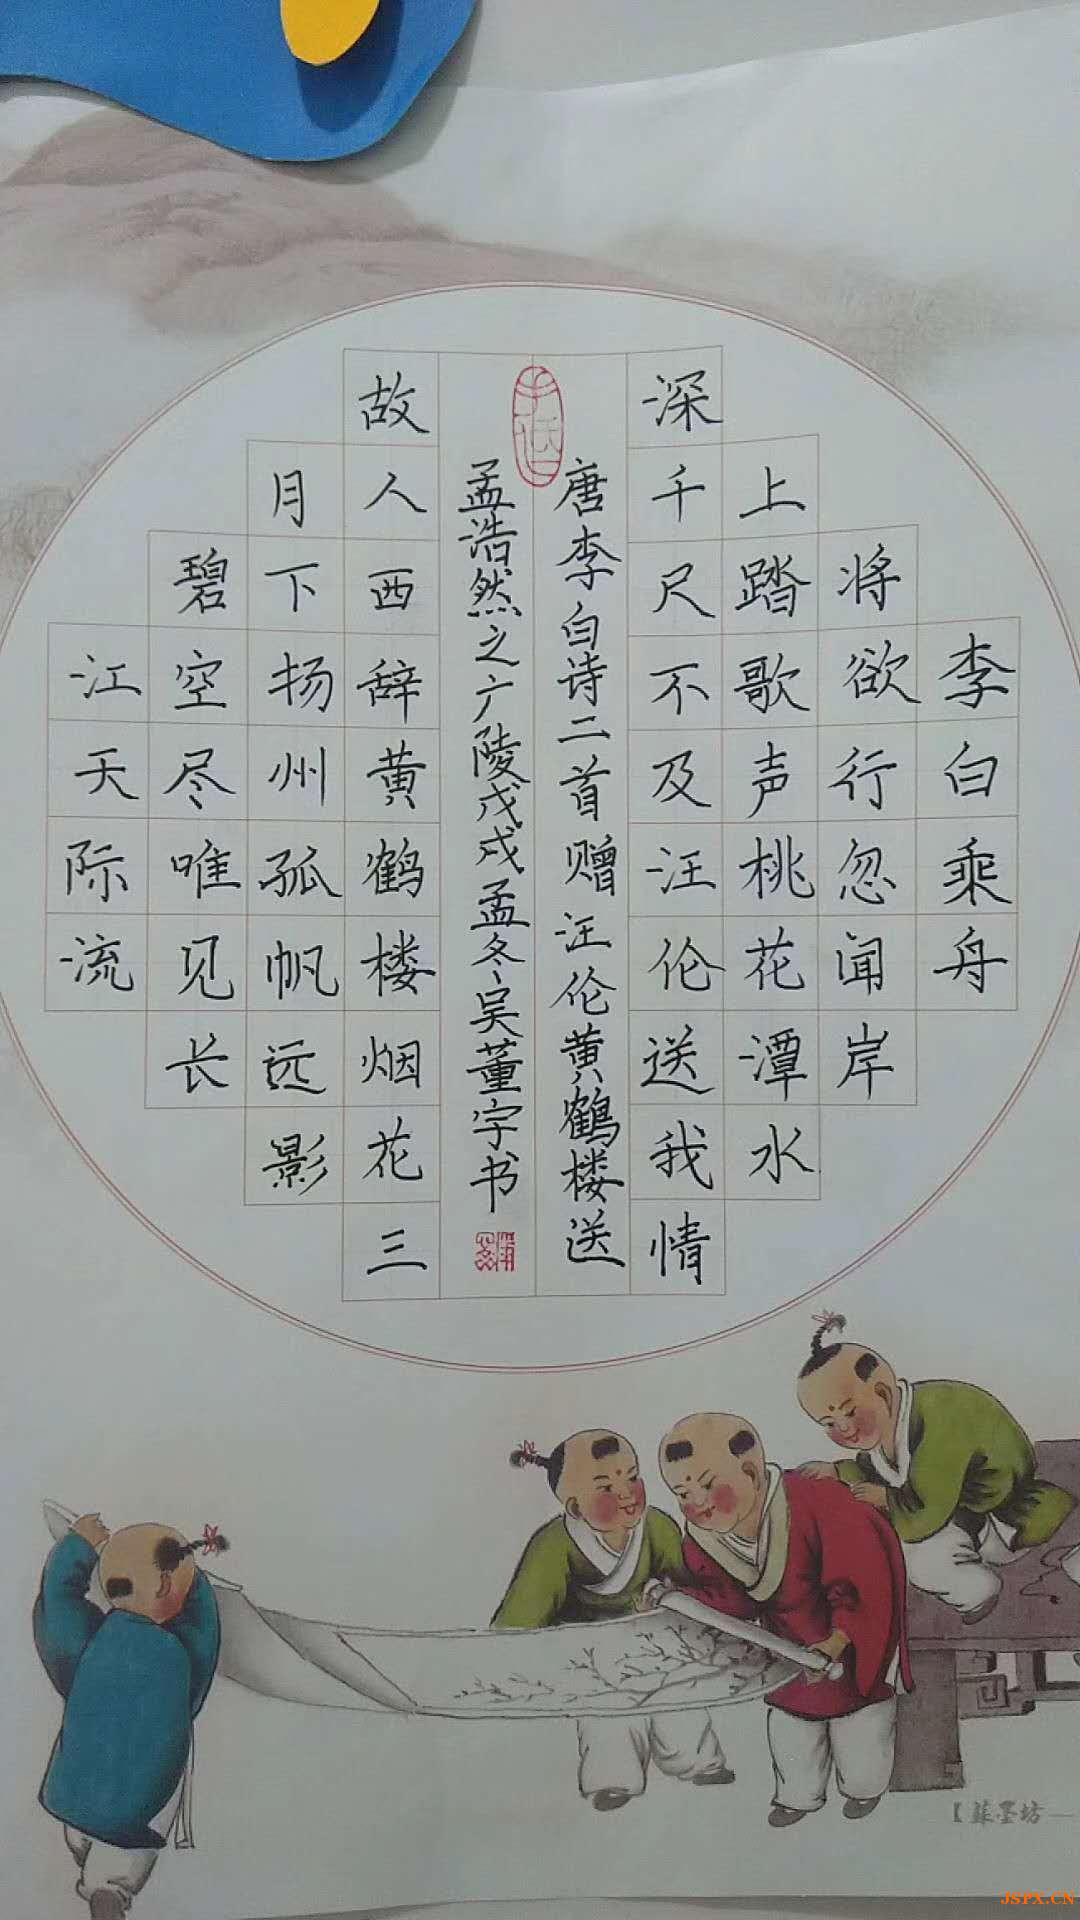 李白乘舟
将欲行忽闻岸
上踏歌声桃花潭水
深千尺不及汪伦送我情
唐李白诗二首赠汪伦黄鹤楼送
孟浩然之广陵戊戌孟冬吴董宇书
故人西辞黄鹤楼烟花三
月下扬州孤帆远影
碧空尽唯见长
江天际流
【蘇墨坊
JSPX.CN